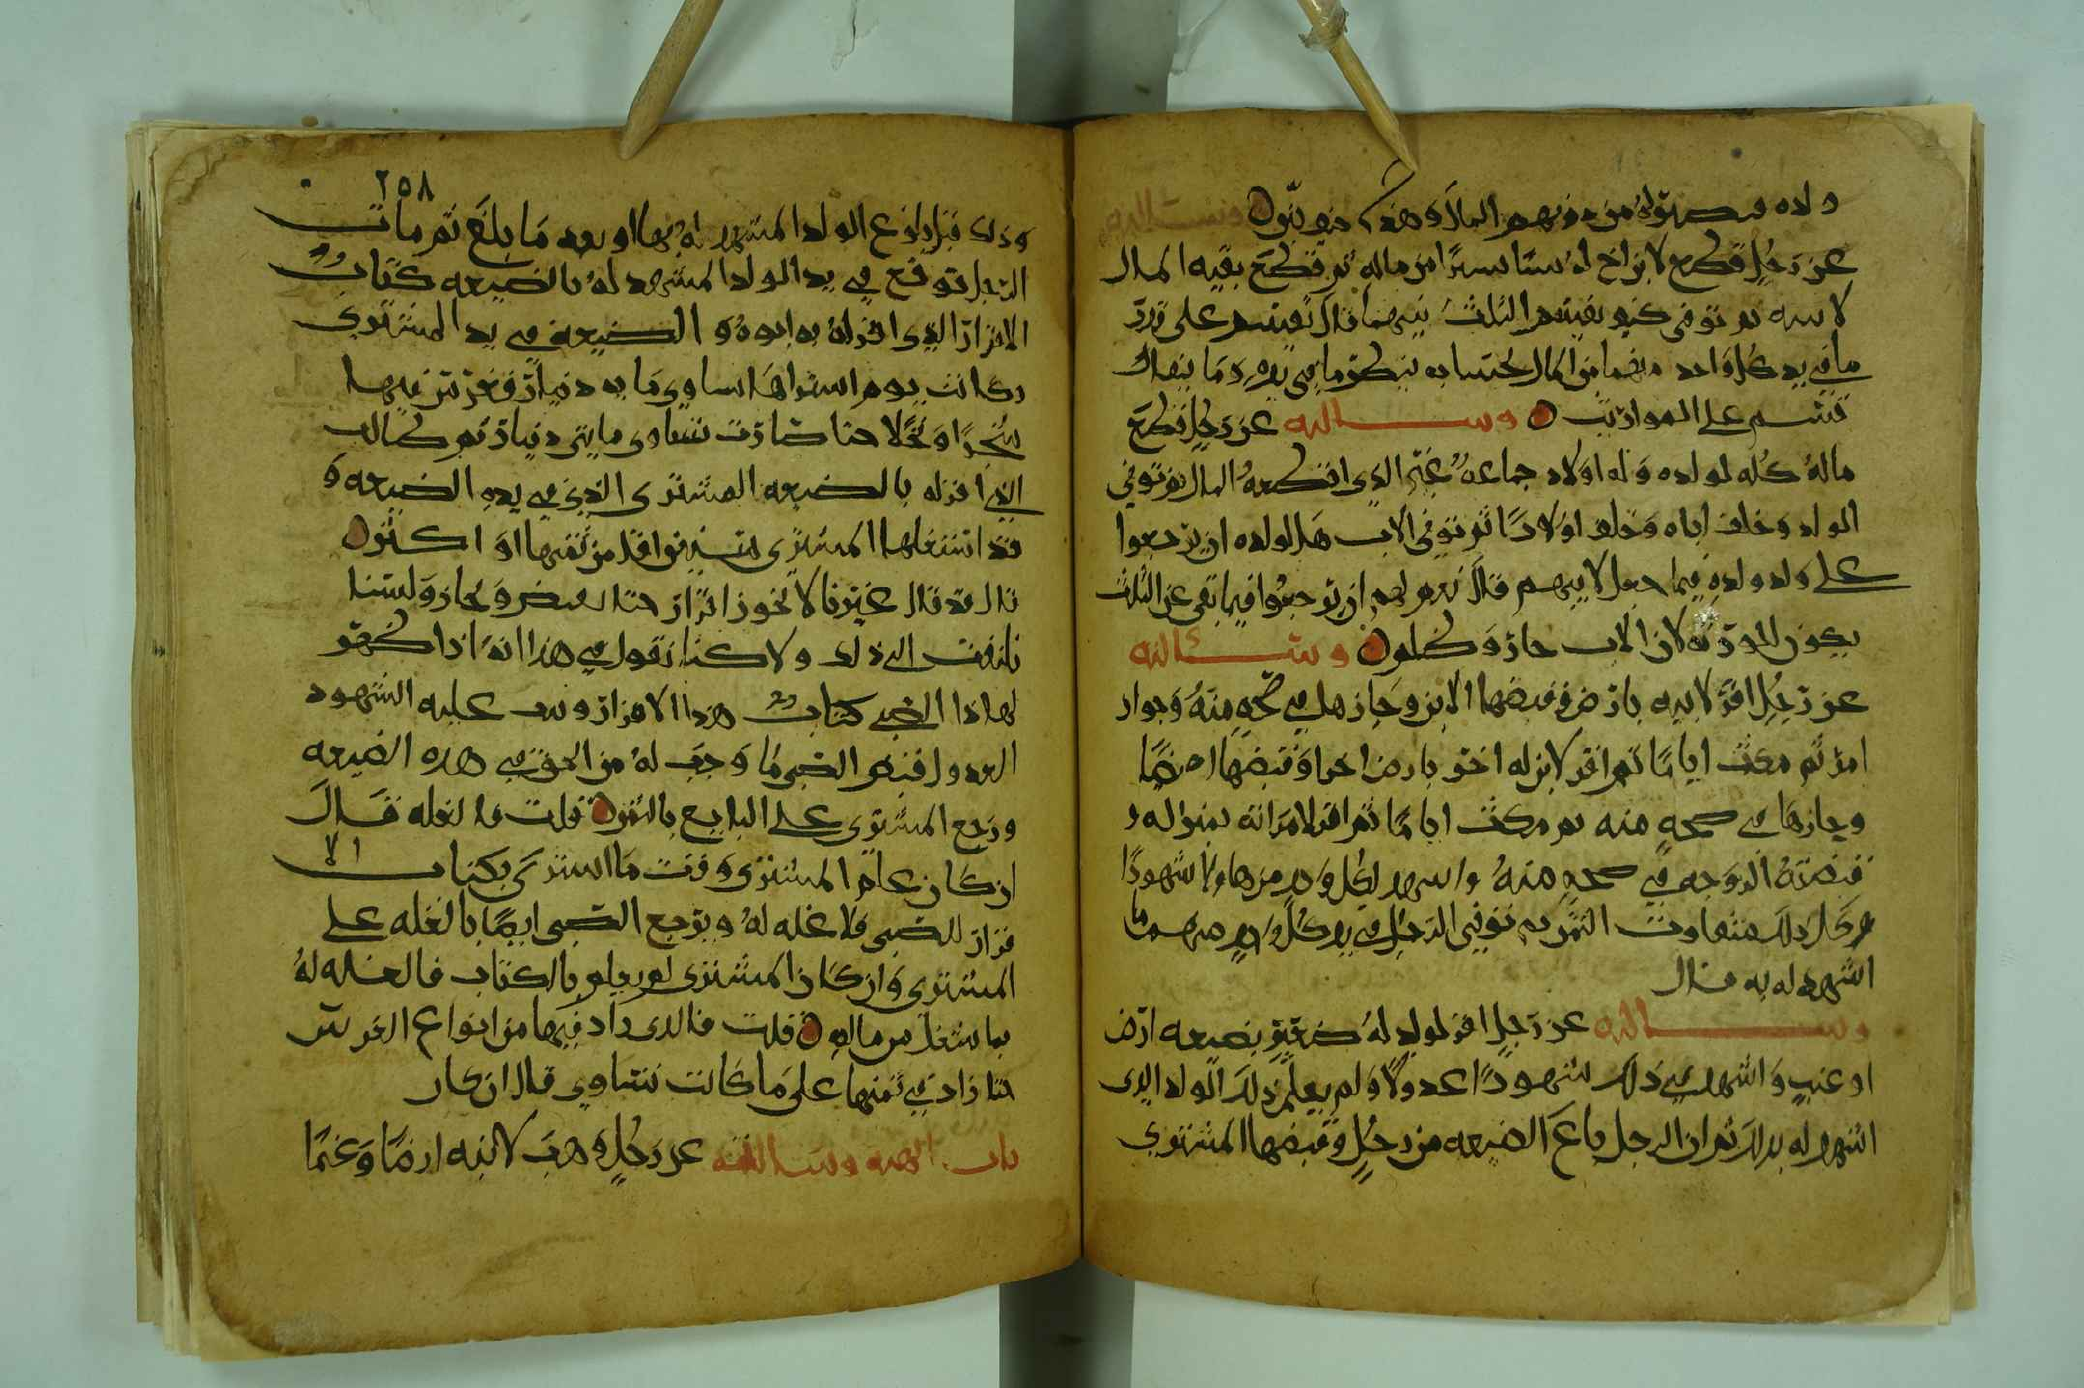 ولده من دونهم المال وهذا وسالته
عن رجل قطع لابن اخ له شيا يسيرا من ماله ثم قطع بقيه المال
لابنه ثم توفى كيف يقيسم الثلث بينهما قال يقيسم على قدر
ما في يد كل واحد منهما من المال بحتسابه ينظر ما في يده وما بيقا
قسم على المواريث وسالته عن رجل قطع
ماله كله لولده وله اولاد جماعه غير الذي اقطعه المال ثم توفي
الولد وخلف اباه وخلف اولادا ثم توفي الاب هل لولده ان يرجعوا
على ولد ولده فيما جعل لابيهم قال نعم لهم ان يرجعوا فيما بقى عن الثلث
يكون للورثه لان الاب جاز وسالته
عن رجل اقر لابنه بارض فقبضها الابن وحازها في صحه منه وجواز
امر ثم مكث اياما ثم اقر لابن له اخر بارض اخرا وقبضها ايضا
وحازها في صحه منه ثم مكث اياما ثم اقر لامراته بمنزاله و
قبضته الزوجه في صحه منه واشهد لكل واحد منهما ولا شهودا
وكل ذلك متفاوت الثمن ثم توفي الرجل في يد كل واحد منهم ما
اشهد له به قال
وسالته عن رجل اقر لولد له صغير بضيعه ارض
او عنب واشهد في ذلك شهودا عدولا ولم يعلم ذلك الولد الذي
اشهد له بذلك ثم ان الرجل باع الضيعه من رجل وقبضها المشتري
٢٥٨
وذلك قبل بلوغ الولد المشهد له بها او بعد ما بلغ ثم مات
الرجل فوقع في يد الولد المشهد له بالضيعه كتاب
الاقرار الذي اقر له به ابوه و الضيعه في يد المشتري
وكانت يوم اشتراها تساوي مايه دينار فغرس فيها
شجرا ونخلا حتا صارت تساوي مايتي دينار ثم طالب
الذي اقر له بالضيعه المشتري الذي في يده الضيعه و
قد استغلها المشتري سنين فاقل من ثمنها او اكثر
قال قد قال غيرنا لا يجوز اقرار حتا يقبض ويحاز ولسنا
نلتفت الى ذلك ولاكنا نقول في هذا انه اذا ظهر
لهاذا الصبي كتاب هذا الاقرار وشهد عليه الشهود
العدول قبض الصبي ما وجب له من الحق في هذه الضيعه
ورجع المشتري على البايع بالثمن قلت فالغله قال
ان كان علم المشتري وقت ما اشترى بكتاب الا
قرار للصبي فلا غله له ويرجع الصبي ايضا بالغله على
المشتري وان كان المشتري لم يعلم بالكتاب فالغله له
بما شغل من ماله قلت فالذي زاد فيها من انواع الغرس
حتا زاد في ثمنها على ما كانت تساوي قال ان كان
باب الهبه وسالته عن رجل وهب لابنه ارضا وغنما